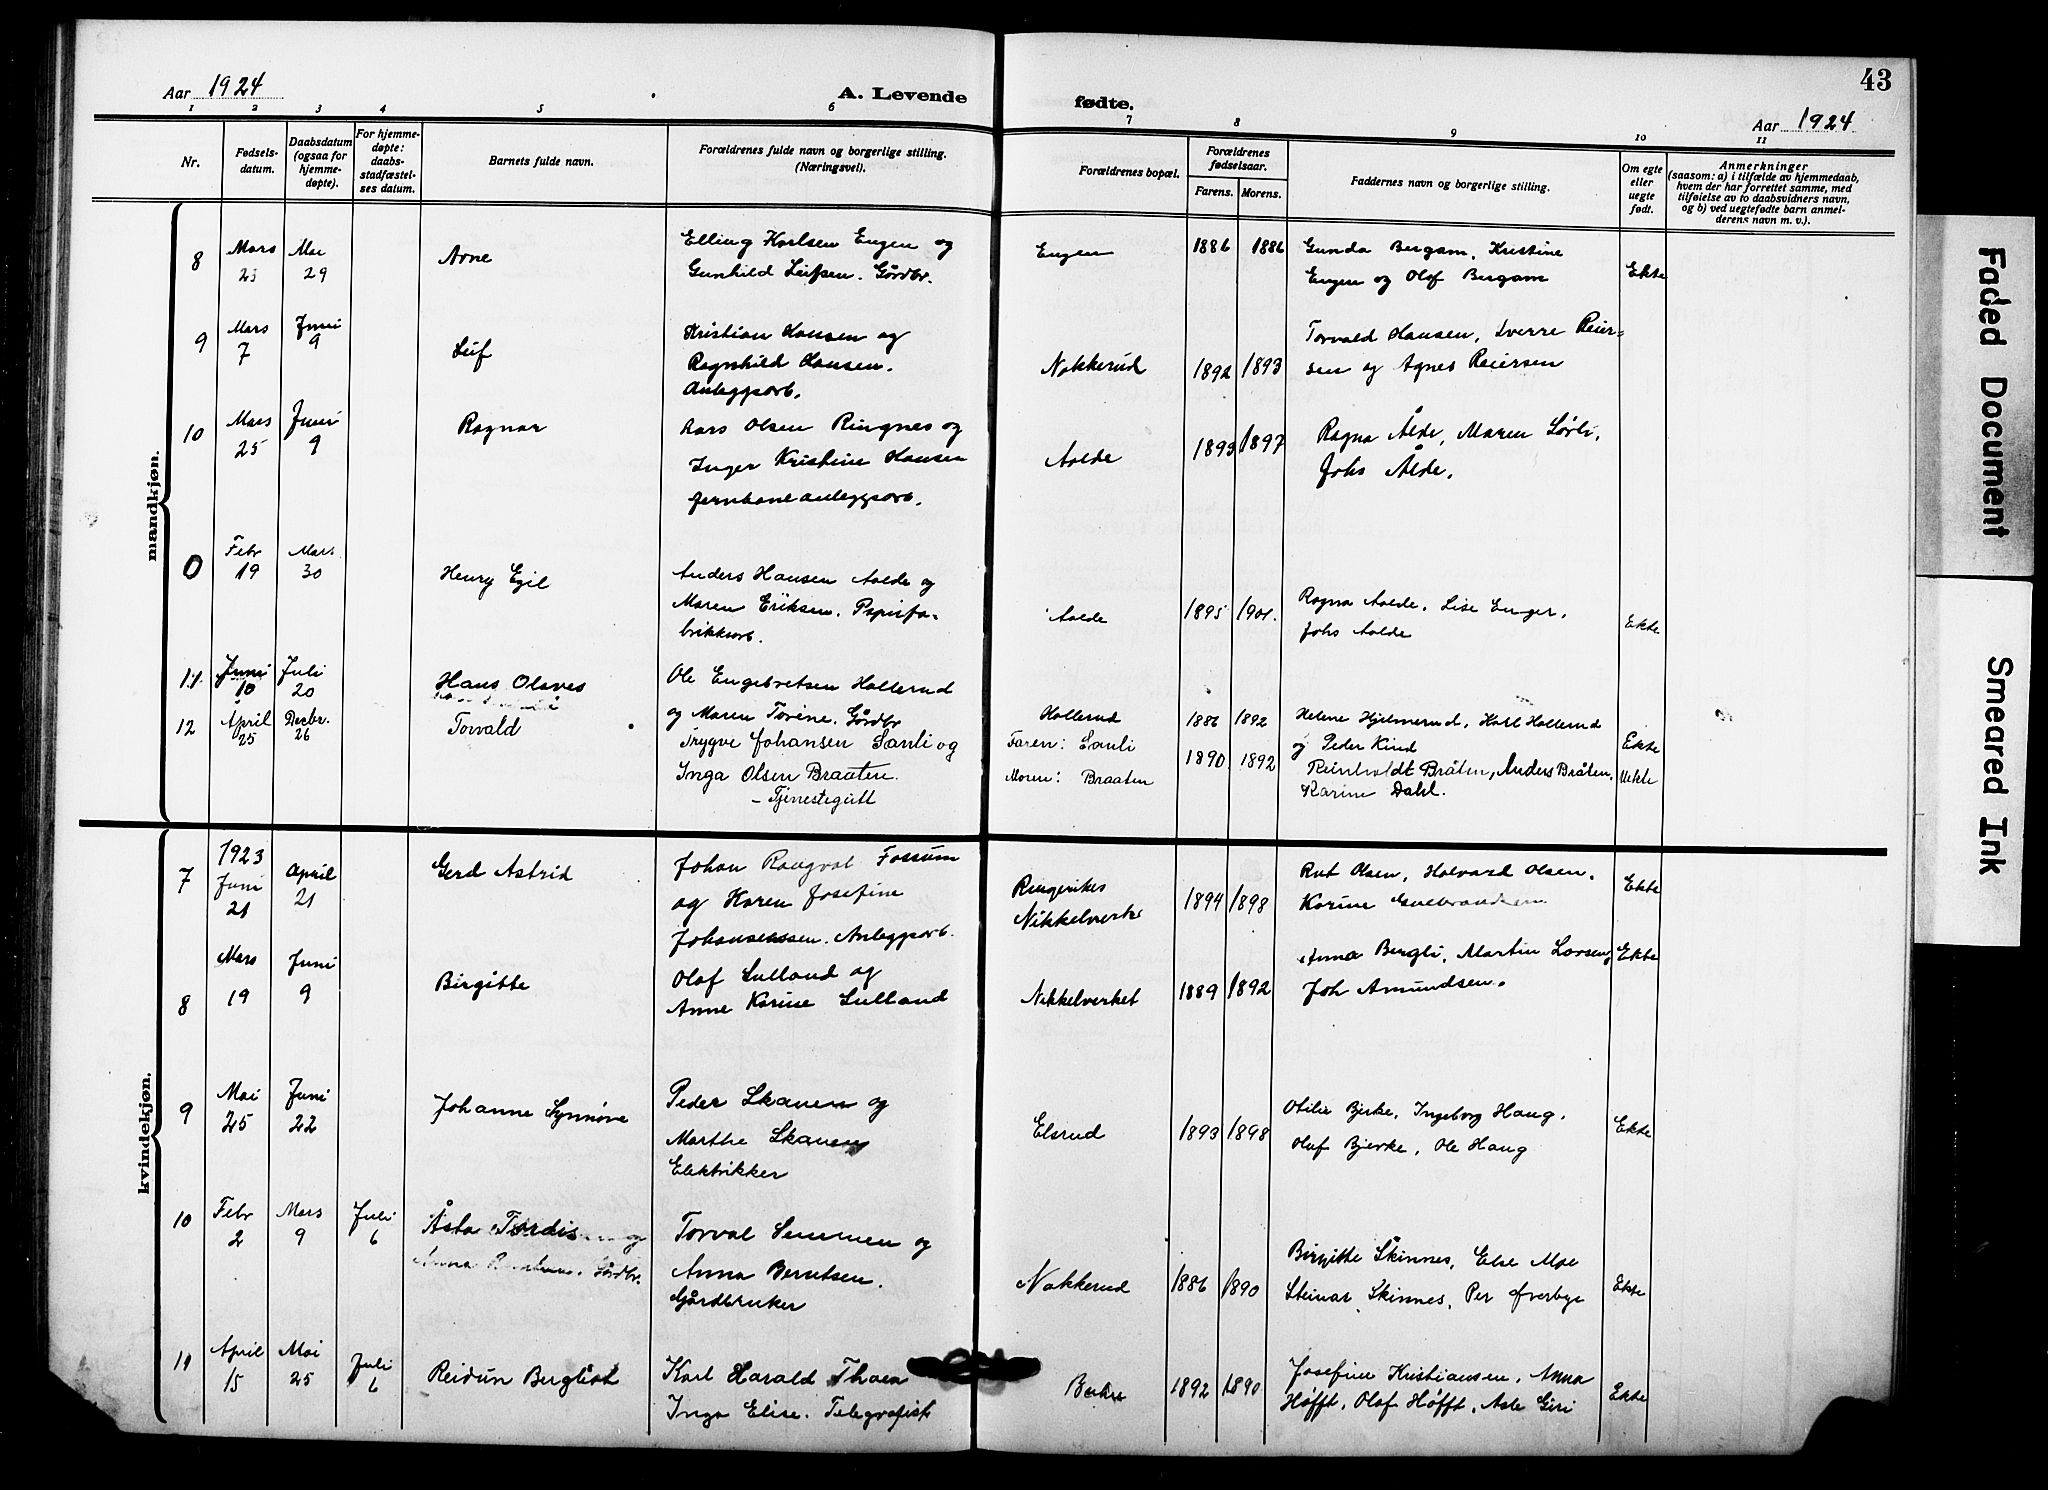 43
Aar 1924
A. Levende fødte.
Aar 1924
1 2 3 4 5 6 7 8 9 10 11
Nr.
Fødsels-
datum.
Daabsdatum
(ogsaa for
hjemme-
døpte).
For hjemme-
døpte:
daabs-
stadfæstel-
ses datum.
Barnets fulde navn.
Forældrenes fulde navn og borgerlige stilling.
(Næringsvei).
Forældrenes bopæl.
Forældrenes
fødselsaar.
Farens. Morens.
Faddernes navn og borgerlige stilling.
Om egte
eller
uegte
født.
Anmerkninger
(saasom: a) i tilfælde av hjemmedaab,
hvem der har forrettet samme, med
tilføielse av to daabsvidners navn,
og b) ved uegtefødte barn anmel-
derens navn m. v.).
mandkjøn.
8
Mars
23
Mai
29
Arne
Elling Karlsen Engen og
Gunhild Leifsen. Gårdbr.
Engen
1886 1886
Gunda Bergam, Kristine
Engen og Olof Bergam
Ekte
9
Mars
7
Juni
9
Leif
Kristian Hansen og
Ragnhild Hansen.
Anleggsarb.
Nakkerud
1892 1893
Torvald Hansen, Sverre Reier-
sen og Agnes Reiersen
10
Mars
25
Juni
9
Ragnar
Lars Olsen Ringnes og
Inger Kristine Hansen
jernbaneanleggsarb.
Aalde
1893 1897
Ragna Ålde, Maren Sørli,
Johs Ålde.
0
Febr
19
Mars
30
Henry Egil
Anders Hansen Aalde og
Maren Eriksen. Papirfa-
brikkarb.
Aalde
1895 1901.
Ragna Aalde, Lise Enger,
Johs Aalde
Ekte
11
Juni
10
Juli
20
Hans Olaves
Ole Engebretsen Hollerud
og Maren Torine. Gårdbr
Hollerud
1886 1892
Helene Hjelmerud, Karl Hollerud
og Peder Kind
Ekte
12
April
25
Decbr.
26
Torvald
Trygve Johansen Sanli og
Inga Olsen Braaten.
– Tjenestegutt
Faren: Sanli
Moren: Braaten
1890 1892
Reinholdt Bråten, Anders Bråten,
Karine Dahl.
Uekte
kvindekjøn.
7
1923
Juni
21
April
21
Gerd Astrid
Johan Rangval Fossum
og Karen Josefine
Johansen. Anleggsarb.
Ringerikes
Nikkelverk
1894 1898
Rut Olsen, Halvard Olsen,
Karine
Ekte
8
Mars
19
Juni
9
Birgitte
Olaf Sulland og
Anne Karine Sulland
Nikkelverket
1889 1892
Anna Bergli, Martin Larsen,
Joh Amundsen.
Ekte
9
Mai
25
Juni
22
Johanne Synnøve
Peder Skauen og
Marthe Skauen
Elektrikker
Elsrud
1893 1898
Otilie Bjerke, Ingeborg Haug.
Oluf Bjerke, Ole Haug
Ekte
10
Febr
2
Mars
9
Juli
6
Åsta Tordis
Torval Semmen og
Anna Berntsen.
Gårdbruker
Nakkerud
1886 1890
Birgitte Skinnes, Else Moe
Steinar Skinnes, Per Øverbye
Ekte
11
April
15
Mai
25
Juli
6
Reidun Bergliot
Karl Harald Thoen
Inga Elise. Telegrafist
1892 1890
Josefine Kristiansen, Anna
Høfft, Olaf Høfft, Asle Giri
Ekte
Faded Document
Smeared Ink